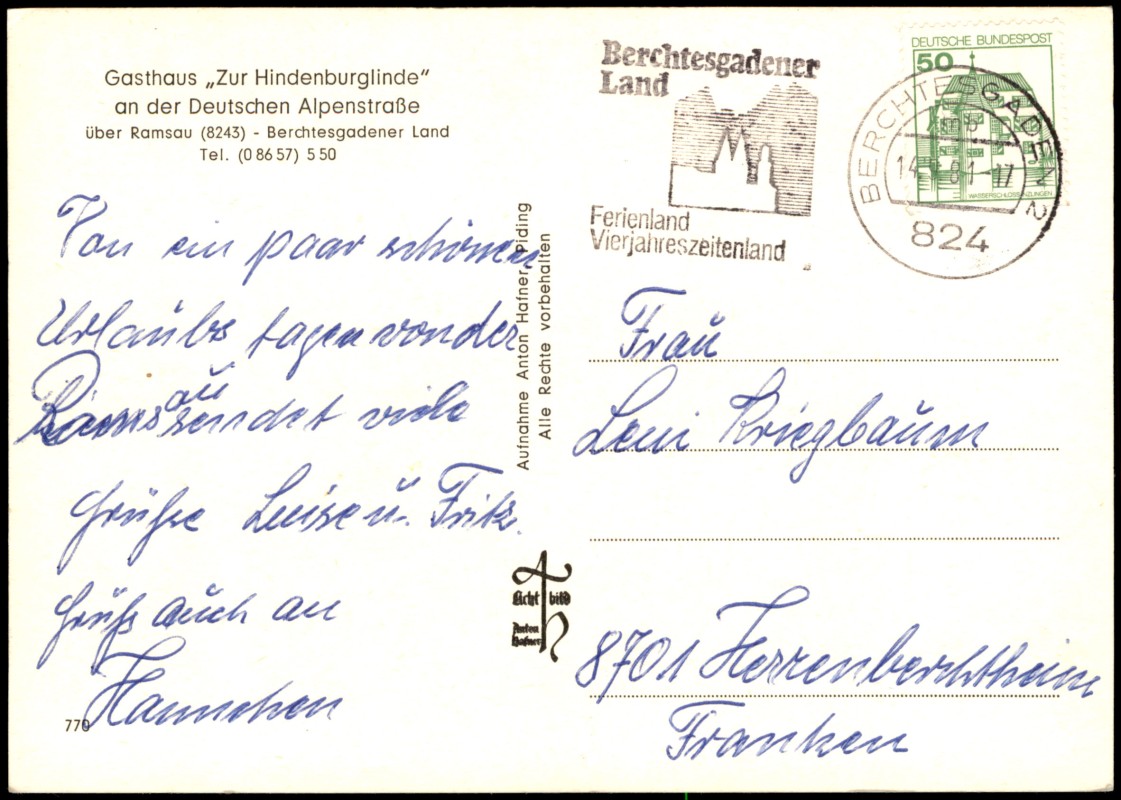 Gasthaus „Zur Hindenburglinde"
an der Deutschen Alpenstraße
über Ramsau (8243) - Berchtesgadener Land
Tel. (0 86 57) 5 50
Von ein paar schönen
Urlaubs tagen von der
Ramsau sendet viele
Grüße Luise u. Fritz.
Gruß auch an
Hannchen
770
Aufnahme Anton Hafner, Piding
Alle Rechte vorbehalten
Licht bild
Anton
Hafner
Berchtesgadener
Land
Ferienland
Vierjahreszeitenland
DEUTSCHE BUNDESPOST
50
WASSERSCHLOSS INZLINGEN
BERCHTESGADEN 2
mb
81-17
824
Frau
Leni Kriegbaum
8701 Herrenberchtheim
Franken